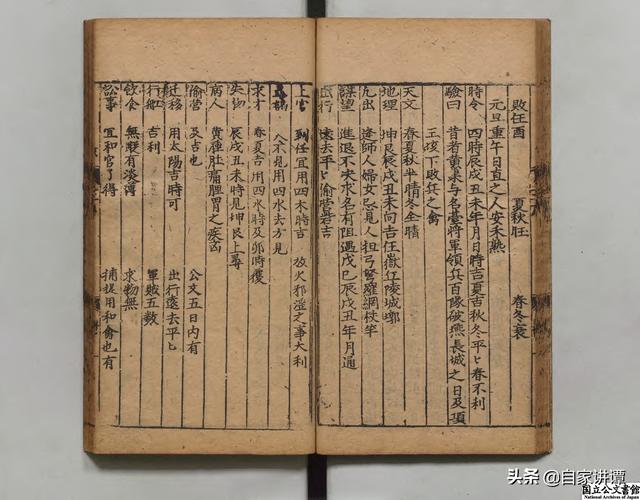 敗任酉 夏秋旺 春冬衰
元旦重午日直之人安禾熟
時令 四時辰戌丑未年月日時吉夏吉秋冬平匕春不利
驗曰 昔者黄杲与名臺將軍領兵百隊破燕長城之日及項
王垓下敗兵之禽
天文 春夏秋半晴冬全晴
地理 坤艮辰戌丑未向吉任嶽江陵城墎
凡出 逢師人婦女忽見人担弓弩羅網杖竿
謀望 進退不决求名有阻遇戊巳辰戌丑年月通
出行 遠去平匕偷營若吉
上官 到任宜用四木時吉 放火邪淫之事大利
謁 人不見用四水去方見
求才 春夏吉用四水時及卯時獲
失物 辰戌丑未時見坤艮上尋
病人 黄腫肚痛膽胃之疾凶
偷營 及吉也 公文五日内有
迁移 用太陽吉時可 出行遠去平匕
行鄉 吉利 軍賊五数
飲食 無 有淡薄 求物無
訟事 宜和官了得 捕捉用和禽也有
头条 @自家讲谭
国立公文書館
National Archives of Japan